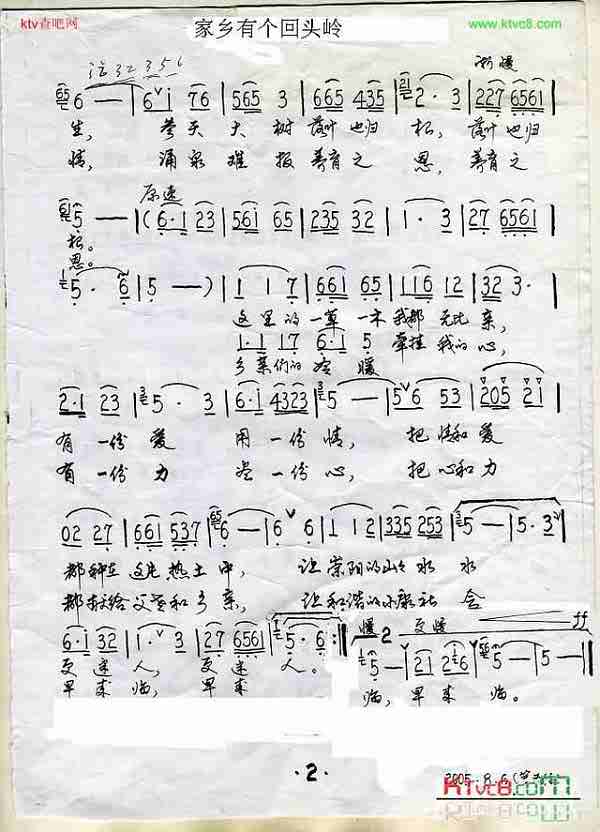 ktv查吧网
www.ktvc8.com
家乡有个回头岭
渐慢
6 — | 6 i 76 | 565 3 | 665 435 | 2 · 3 | 227 6561 |
生， 参天大树 落叶也归 根， 落叶也归
情， 涌泉难报 养育之 恩， 养育之
原速
5 — | ( 6·1 23 | 561 65 | 235 32 | 1 · 3 | 27 6561 |
根。
恩。
5 · 6 | 5 — ) | 1 1 7 | 661 65 | 116 12 | 32 3 · |
这里的一草一木我都 无比亲，
1 1 17 6·1 5
乡亲们的冷暖 牵挂我的心，
2·1 23 | 5 · 3 | 6·1 4323 | 5 — | 5 6 53 | 205 21 |
有一份爱 用一份情， 把情和爱
有一份力 尽一份心， 把心和力
02 27 | 661 537 | 6 — | 6 6 | 1 12 | 335 253 | 5 — | 5· 3 |
都种在这片热土中， 让 的山山水水
都献给父老和乡亲， 让和谐的小康社会
ff
慢 2 更慢
6·1 32 | 1 · 3 | 27 6561 | 5 · 6 :|| 5 — | 21 2 6 | 5 — | 5 — ||
更迷人， 更迷人。
早来临， 早来
临，早来临。
· 2 ·
2005.8.6
KTvc8.com